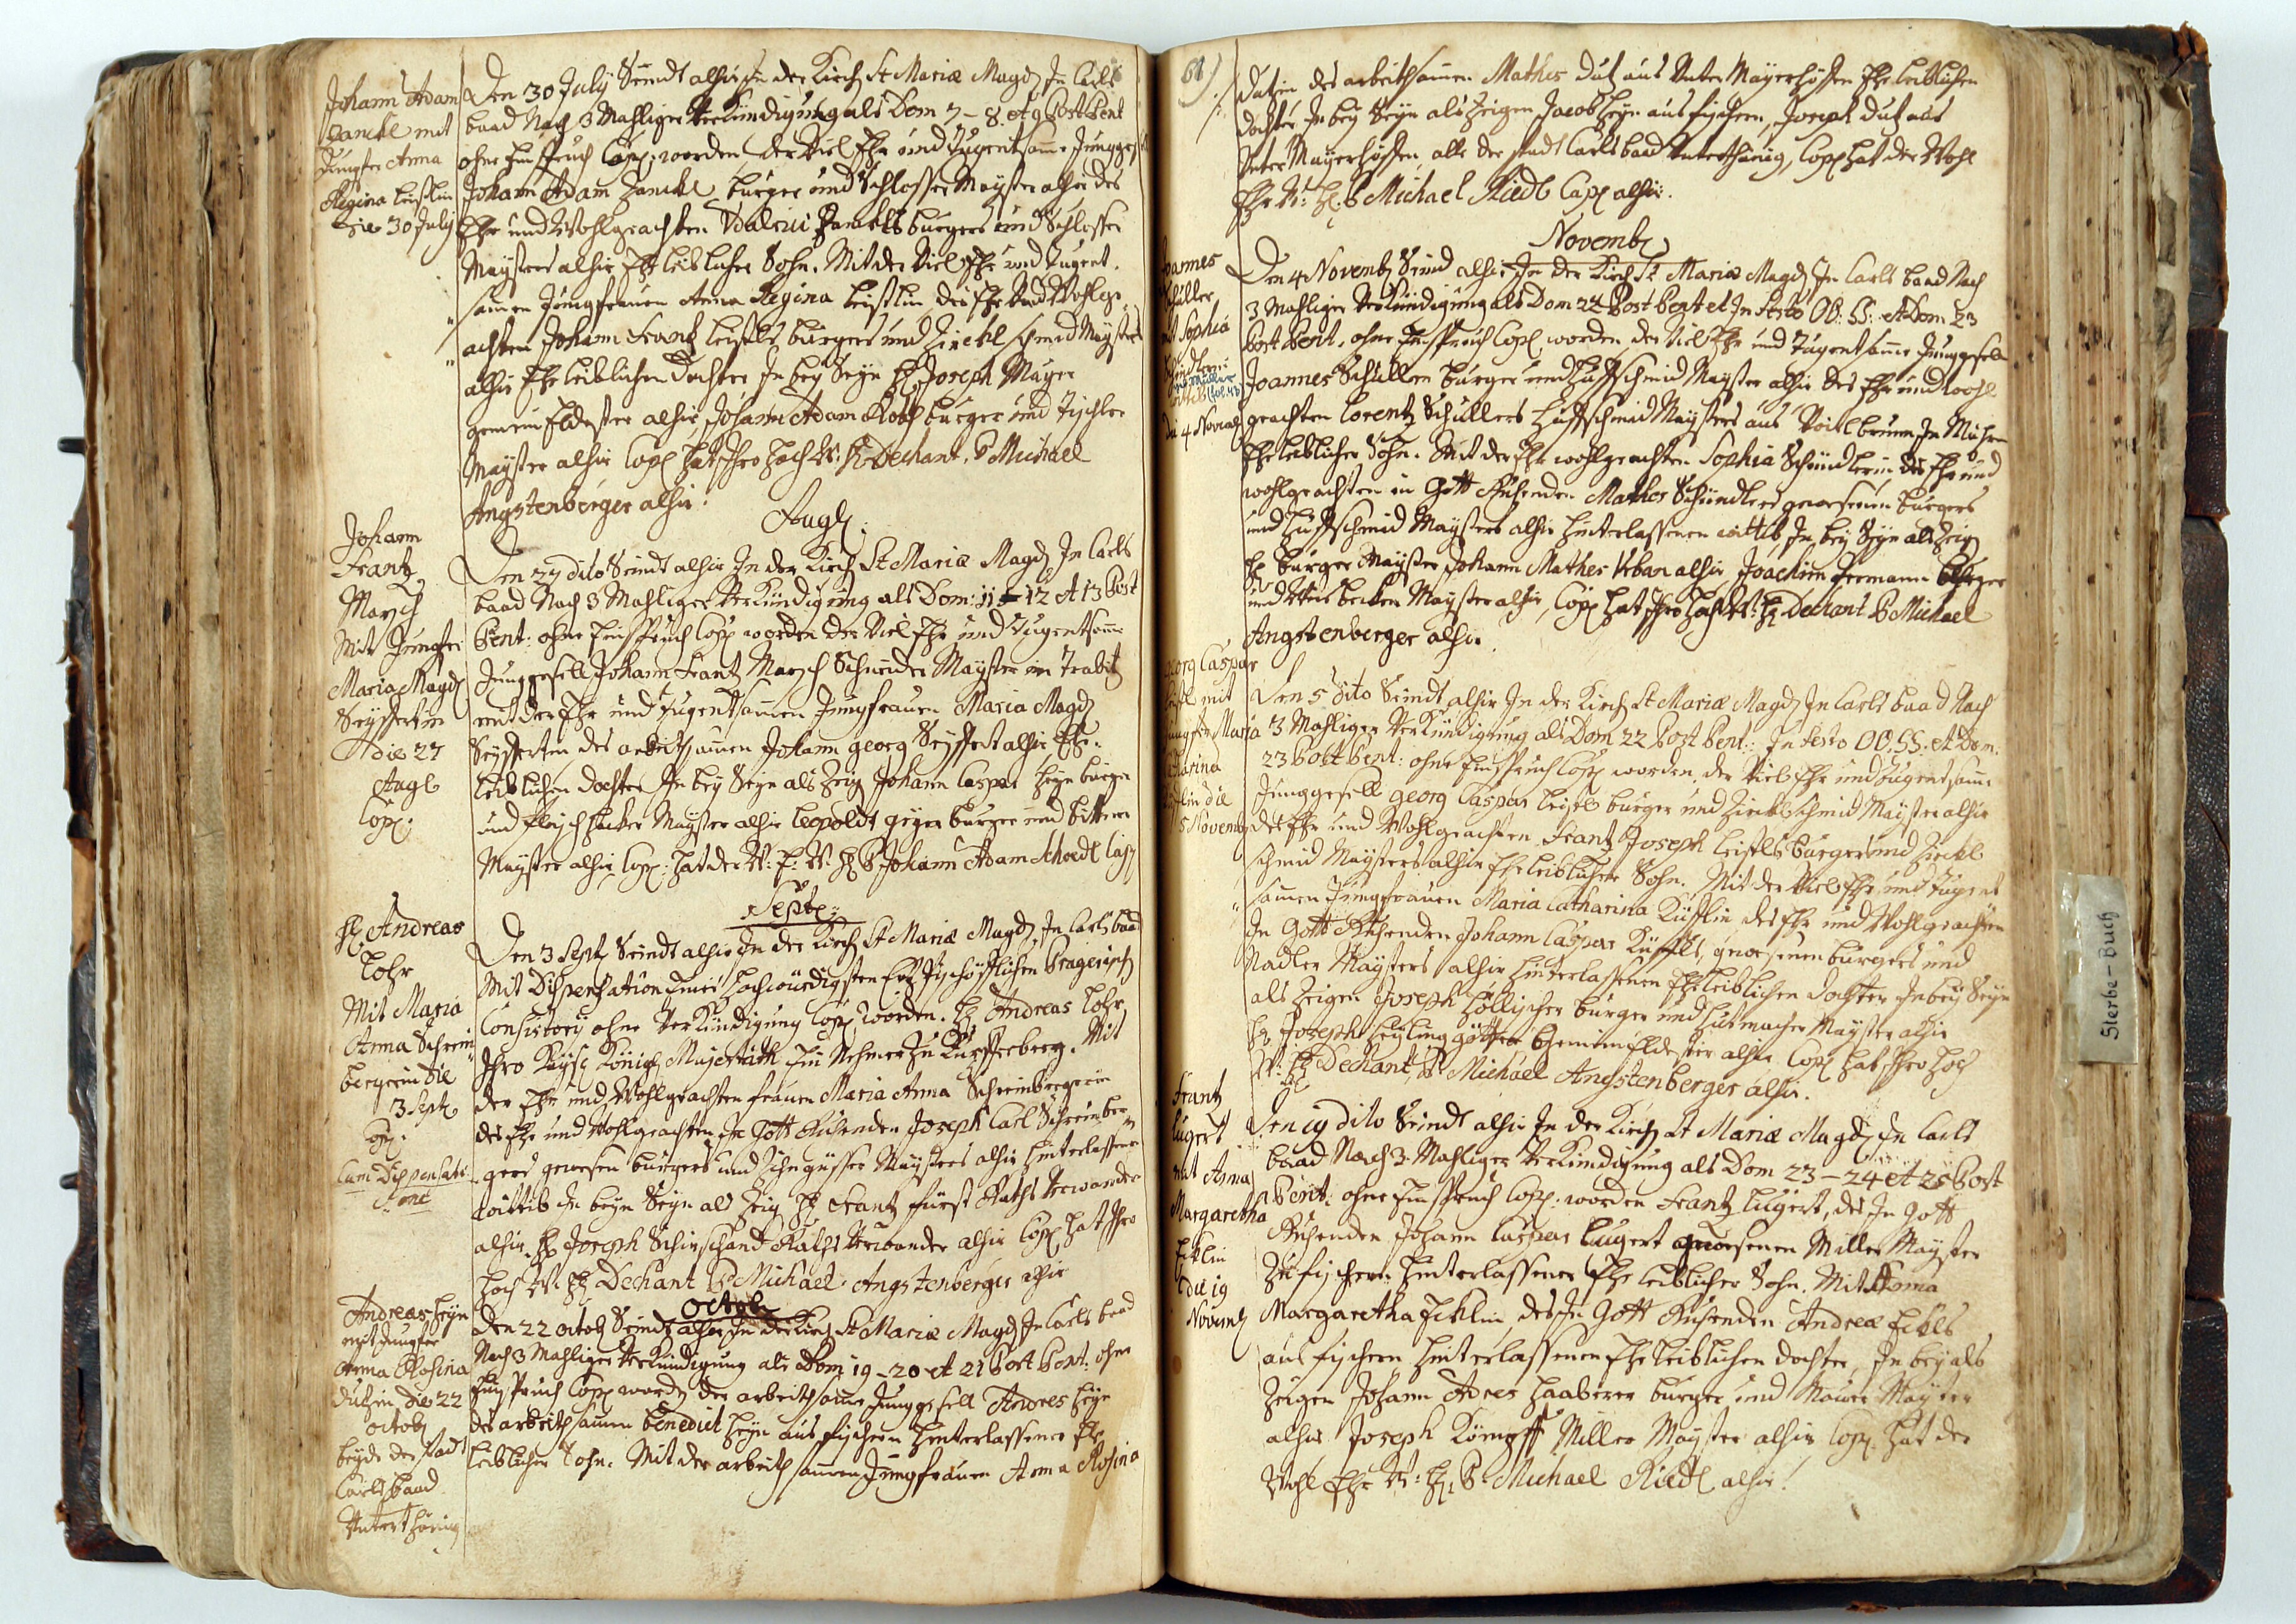 Johann Adam
Zanckl mit
Jungfer Anna
Regina Leistlin
die 30 July
Den 30 July Seindt alhir in der Kirch St Mariæ Magd: In Carls
baad Nach 3 Mahliger Verkündigung als Dom 7 – 8 et 9 Post Pent
ohne Einspruch Cop: worden der Viel Ehr und Tugentsame Junggesell
Johann Adam Zanckl burger und Schlosser Mayster alhir des
Ehr und Wohlgeachten Zanckls burgers und Schlosser
Maysters alhir Eheleiblicher Sohn. Mit der Viel Ehr und Tugent
samen Jungfrauen Anna Regina Leistlin des Ehr und Wohlge
achten Johann Frantz Leistls burgers und Zirckl schmid Maysters
alhir Eheleiblichen dochter In bey Seyn H: Joseph Mayer
gemein Eldester alhir, Johann Adam burger und Tischler
Mayster alhir Cop: hat Ihro Hoch W: H: Dechant. P Michael
Angstenberger alhir.
Johann
Frantz
Marsch
Mit Jungfer
Maria Magd:
Seyffertin
die 27
Aug:
Cop:
Aug:
Den 27 dito Seindt alhir In der Kirch St Mariæ Magd: In Carls
baad Nach 3 Mahliger Verkündigung als Dom: 11 – 12 et 13 Post
Pent: ohne Einspruch Cop: worden der Viel Ehr und Tugentsame
Junggesell Johann Frantz Marsch Schneider Mayster in
mit der Ehr und Tugentsamen Jungfrauen Maria Magd:
Seyfferten des arbeithsamen Johann georg Seyffert alhir Ehe
leiblichen dochter In bey Seyn als Zeig: Johann Caspar Heyn burger
und Fleischhacker Mayster alhir Leopoldt geyer burger und bittner
Mayster alhir Cop: hat der W: E: W: H: P Johann Adam Schoedl Cap:
H: Andreas
Lohr
Mit Maria
Anna Schrein
bergerin die
3 Sept:
Cum Dispensati
one
Sept:
Den 3 Sept: Seindt alhir In der Kirch St Mariæ Magd: In Carls baad
Mit Dispensation Eines Hochwürdigsten Ertz Bischöfflichen Pragerisch
Consistory ohne Verkündigung Cop: worden. H: Andreas Lohr
Ihro Kayß: Königl: Majestäth Ein Nehmer zu Mit
der Ehr und Wohlgeachten frauen Maria Anna Schreinbergerin
des Ehr und Wohlgeachten In Gott Ruhenden Joseph Carl Schreinber
gers gewesen burgers und Zihn gisser Maysters alhir hinterlassene
wittib In beyn Seyn als Zeig: H: Frantz fürst Raths Verwander
alhir. H: Joseph Raths Verwander alhir Cop: hat Ihro
Hoch W: H: Dechant P: Michael Angstenberger alhir
Andreas Heyn
mit Jungfer
Anna Rosina
Dutzin die 22
octob:
beyde der stadt
Carlsbaad
Unterthänig
Octob:
Den 22 octob: Seindt alhir, In der Kirch St Mariæ Magd: In Carls baad
Nach 3 Mahliger Verkündigung als Dom 19 – 20 et 21 Post Pent: ohne
Einspruch Cop: word: der arbeithsame Junggesell Andres Heyn
des arbeithsamen Benedict Heyn aus fischern hinterlassener Ehe
leiblicher Sohn. Mit der arbeithsamen Jungfrauen Anna Rosina
61)
Dutzin des arbeithsamen Mathes Dutz aus Unter Mayerhöffen Eheleiblichen
dochter In bey Seyn als Zeigen Jacob Heyn aus fischern, Joseph Dutz aus
Unter Mayerhöffen, alle der stadt Carlsbaad Unterthänig, Cop: hat der Wohl
Ehr W: H: P Michael Riedl Cap: alhir.
Joannes
Schuller
mit Sophia
die 4 Novemb:
Novemb:
Den 4 Novemb: Seind alhir In der Kirch St Mariæ Magd: In Carls baad Nach
3 Mahliger Verkündigung als Dom 22 Post Pent et In Festo OO: SS: et Dom 23
Post Pent. ohne Einspruch Cop: worden der Viel Ehr und Tugentsame Junggesell
Joannes Schuller burger und Huffschmid Mayster alhir des Ehr und Wohl
geachten Lorentz Schullers Huffschmid Maysters aus In Mähren
Eheleiblicher Sohn. Mit der Ehr wohlgeachten Sophia Schindlerin des Ehr und
wohlgeachten in Gott Ruhenden Mathes Schindlers gewesenen burgers
und Huffschmid Maysters alhir hinterlassenen wittib In bey Seyn als Zeig:
H: burger Mayster Johann Mathes Urban alhir, Joachim Hermann burger
und Weis becken Mayster alhir, Cop: hat Ihro Hoch W: H: Dechant P: Michael
Angstenberger alhir.
Georg Caspar
Leistl mit
Jungfer Maria
Catharina
Küfflin die
5 Novemb:
Den 5 dito Seindt alhir In der Kirch St Mariæ Magd: In Carls baad Nach
3 Mahliger Verkündigung als Dom 22 Post Pent: In Festo OO, SS. et Dom:
23 Post Pent: ohne Einspruch Cop: worden, der Viel Ehr und Tugentsame
Junggesell georg Caspar Leistl burger und Zirckl schmid Mayster alhir
des Ehr und Wohlgeachten Frantz Joseph Leistls burgers und Zirckl
schmid Maysters alhir Eheleiblicher Sohn. Mit der Viel Ehr und Tugent
samen Jungfrauen Maria Catharina Küfflin des Ehr und Wohlgeachten
In Gott Ruhenden Johann Caspar Küffls, gewesenen burgers und
Nadler Maysters alhir hinterlassenen Eheleiblichen dochter In bey Seyn
als Zeigen Joseph burger und Hutmacher Mayster alhir
H: Joseph Heylingötter Gemein Eldester alhir Cop: hat Ihro Hoch
W: H: Dechant, P: Michael Angstenberger alhir.
Frantz
Lugert
mit Anna
Margaretha
Ecklin
die 19
Novemb:
Den 19 dito Seindt alhir In der Kirch St Mariæ Magd: In Carls
baad Nach 3 Mahliger Verkündigung als Dom 23 – 24 et 25 Post
Pent: ohne Einspruch Cop: worden Frantz Lugert, des In Gott
Ruhenden Johann Caspar Lugert gewesenen Miller Mayster
zu fischern hinterlassener Eheleiblicher Sohn. Mit Anna
Margaretha Ecklin des In Gott Ruhenden Andreæ Eckls
aus fischern hinterlassenen Eheleiblichen dochter, In bey als
Zeigen Johann Adres Haaberer burger und Maurer Mayster
alhir Joseph Kömpff Miller Mayster alhir Cop: hat der
Wohl Ehr W: H: P: Michael Riedl alhir!
Sterbe-Buch